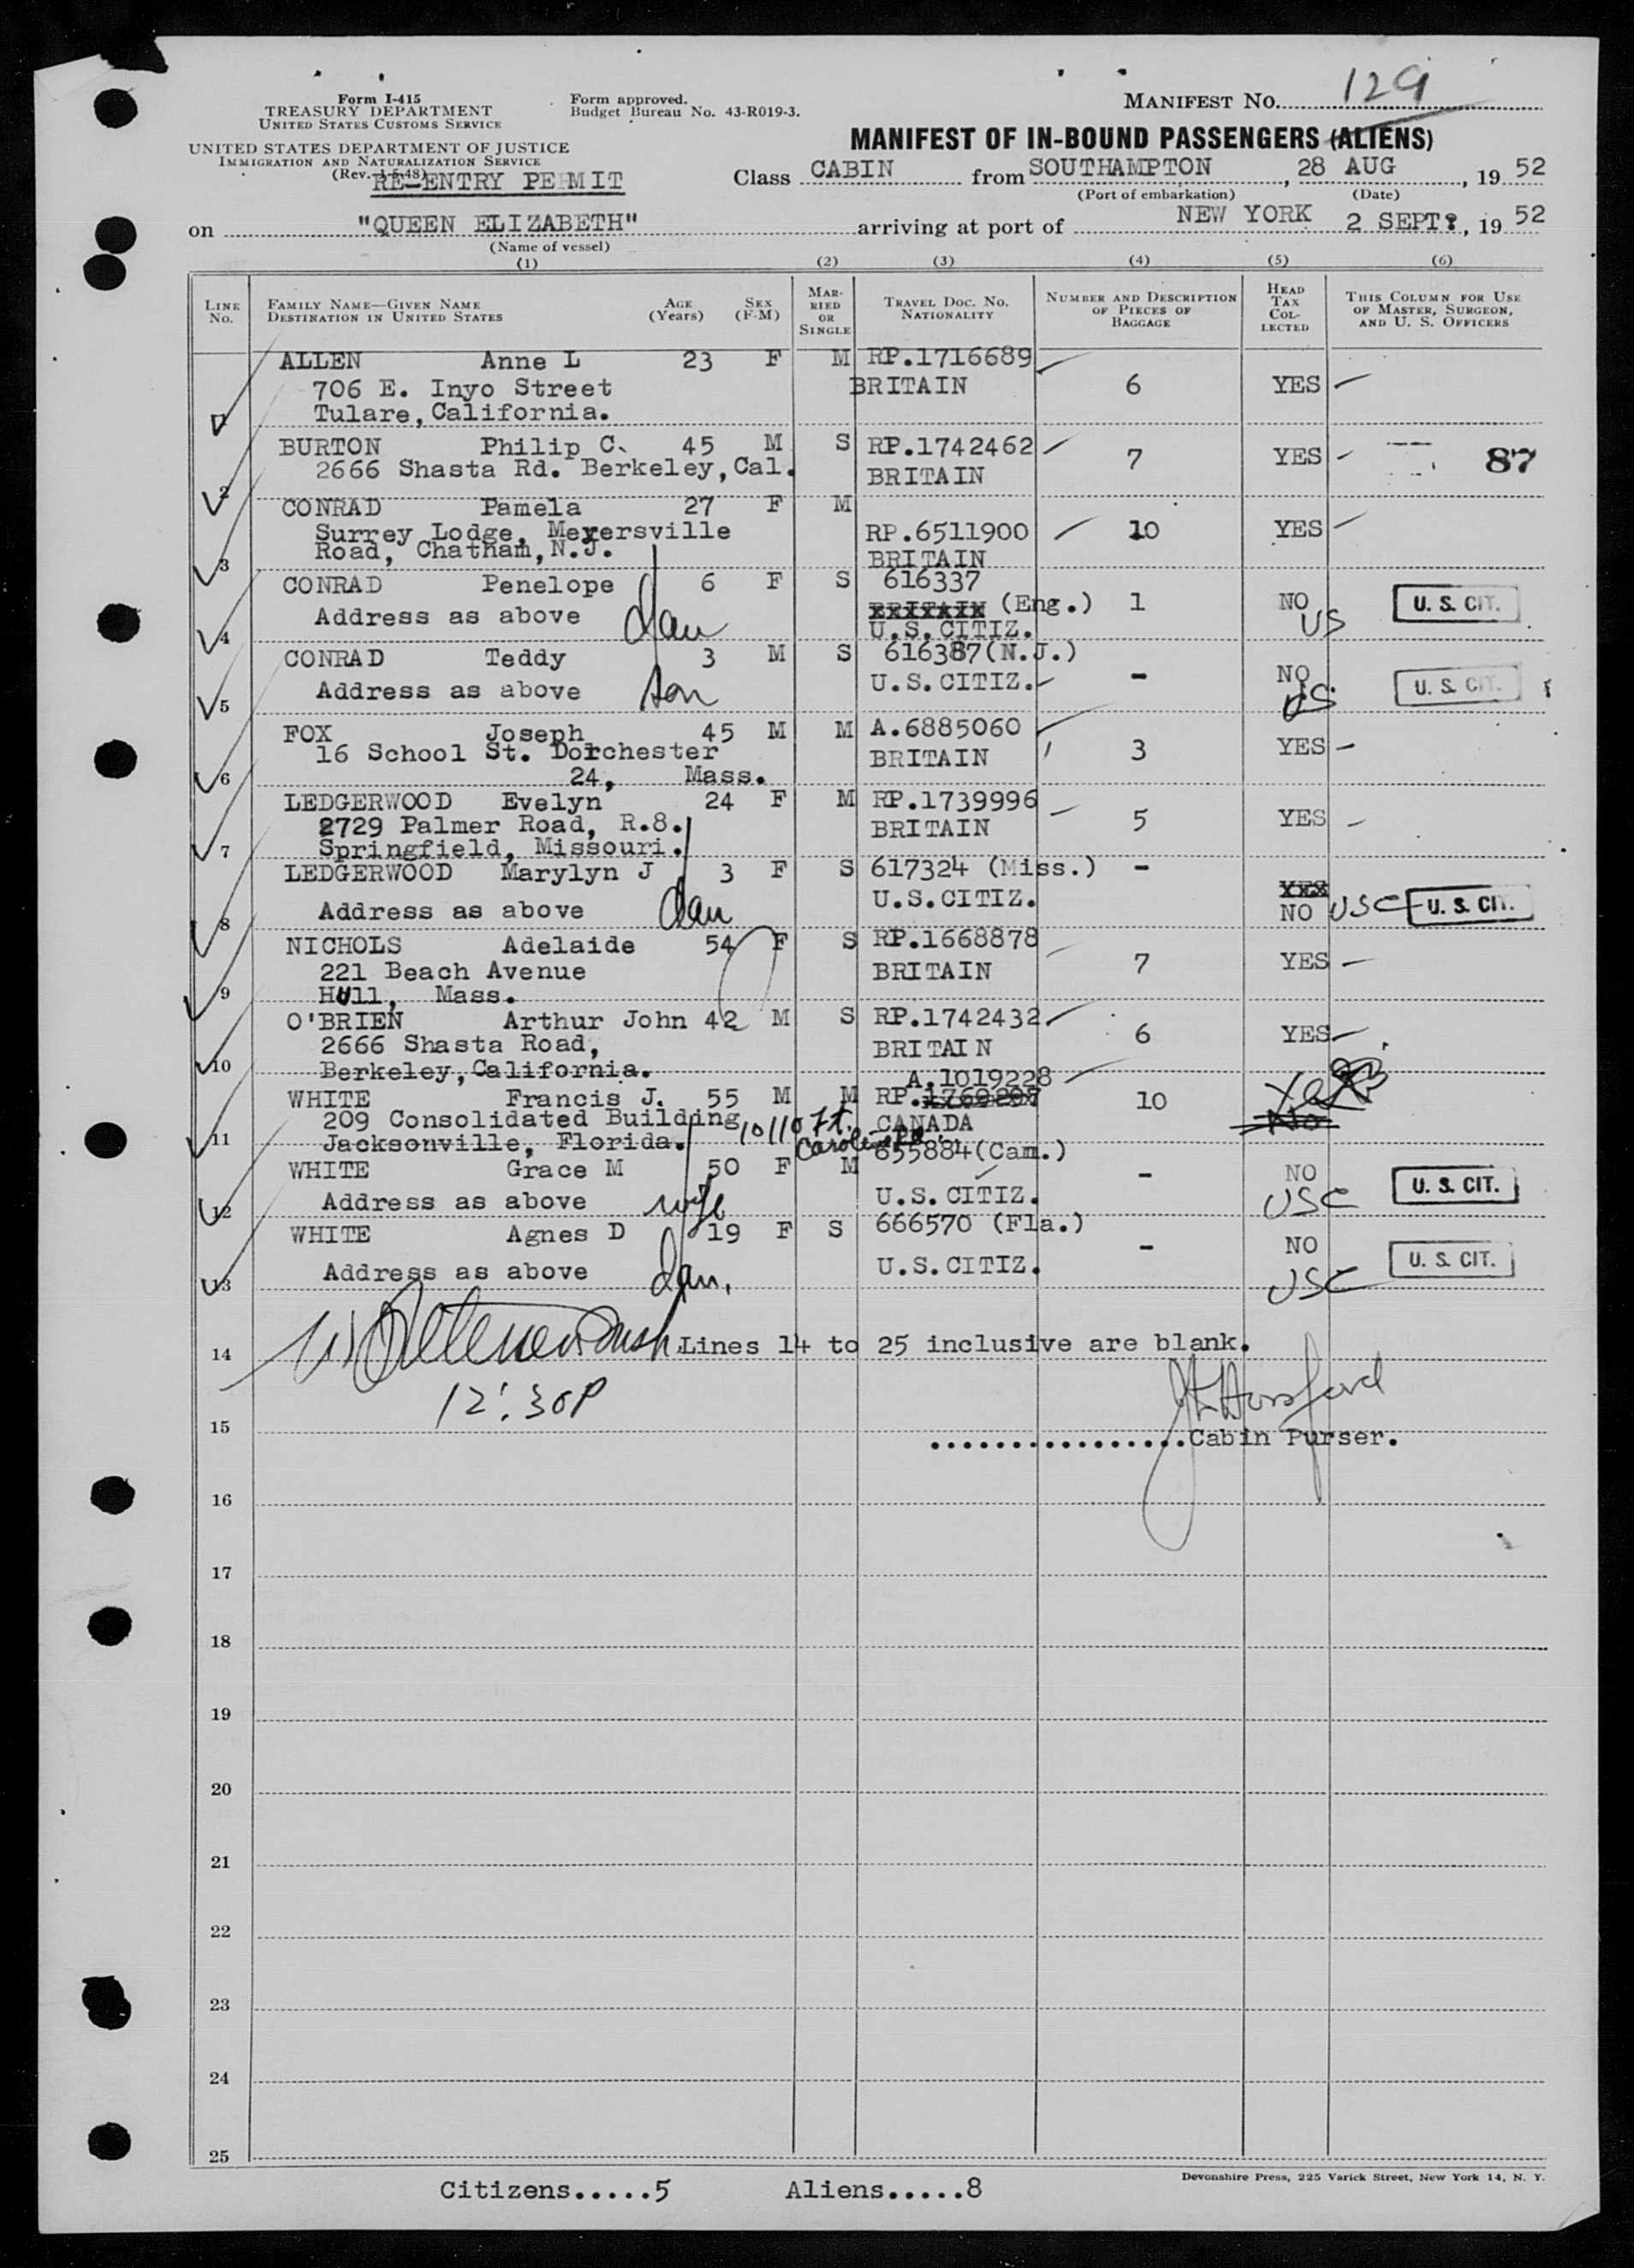 Form I-415
TREASURY DEPARTMENT
UNITED STATES CUSTOMS SERVICE
Form approved.
Budget Bureau No. 43-R019-3.
MANIFEST No. 129
UNITED STATES DEPARTMENT OF JUSTICE
IMMIGRATION AND NATURALIZATION SERVICE
(Rev. 1-5-48)
RE-ENTRY PERMIT
MANIFEST OF IN-BOUND PASSENGERS (ALIENS)
Class CABIN from SOUTHAMPTON, 28 AUG, 1952
(Port of embarkation) (Date)
on "QUEEN ELIZABETH" arriving at port of NEW YORK 2 SEPT, 1952
(Name of vessel)
(1) (2) (3) (4) (5) (6)
LINE No.
FAMILY NAME—GIVEN NAME
DESTINATION IN UNITED STATES
AGE (Years)
SEX (F-M)
MARRIED OR SINGLE
TRAVEL DOC. No. NATIONALITY
NUMBER AND DESCRIPTION OF PIECES OF BAGGAGE
HEAD TAX COLLECTED
THIS COLUMN FOR USE OF MASTER, SURGEON, AND U. S. OFFICERS
ALLEN Anne L 23 F M RP.1716689
706 E. Inyo Street BRITAIN 6 YES
1 Tulare, California.
BURTON Philip C. 45 M S RP.1742462 7 YES 87
2666 Shasta Rd. Berkeley, Cal. BRITAIN
2
CONRAD Pamela 27 F M
Surrey Lodge, Meyersville RP.6511900 10 YES
3 Road, Chatham, N.J. BRITAIN
CONRAD Penelope 6 F S 616337
Address as above dau (Eng.) 1 NO US U. S. CIT.
4 U.S.CITIZ.
CONRAD Teddy 3 M S 616387(N.J.)
Address as above son U.S.CITIZ. - NO US U. S. CIT.
5
FOX Joseph 45 M M A.6885060
16 School St. Dorchester BRITAIN 3 YES
6 24, Mass.
LEDGERWOOD Evelyn 24 F M RP.1739996
2729 Palmer Road, R.8. BRITAIN 5 YES
7 Springfield, Missouri.
LEDGERWOOD Marylyn J 3 F S 617324 (Miss.) -
Address as above dau U.S.CITIZ. NO USC U. S. CIT.
8
NICHOLS Adelaide 54 F S RP.1668878
221 Beach Avenue BRITAIN 7 YES
9 Hull, Mass.
O'BRIEN Arthur John 42 M S RP.1742432
2666 Shasta Road, BRITAIN 6 YES
10 Berkeley, California.
A.1019228
WHITE Francis J. 55 M M RP. 10
209 Consolidated Building CANADA No
11 Jacksonville, Florida. 10110 Ft. Caroline Rd.
WHITE Grace M 50 F M 655884(Cam.)
Address as above wife U.S.CITIZ. - NO USC U. S. CIT.
12
WHITE Agnes D 19 F S 666570 (Fla.)
Address as above dau. U.S.CITIZ. - NO USC U. S. CIT.
13
14 Lines 14 to 25 inclusive are blank.
12:30P
15 Cabin Purser.
16
17
18
19
20
21
22
23
24
25
Citizens.....5 Aliens.....8
Devonshire Press, 225 Varick Street, New York 14, N. Y.